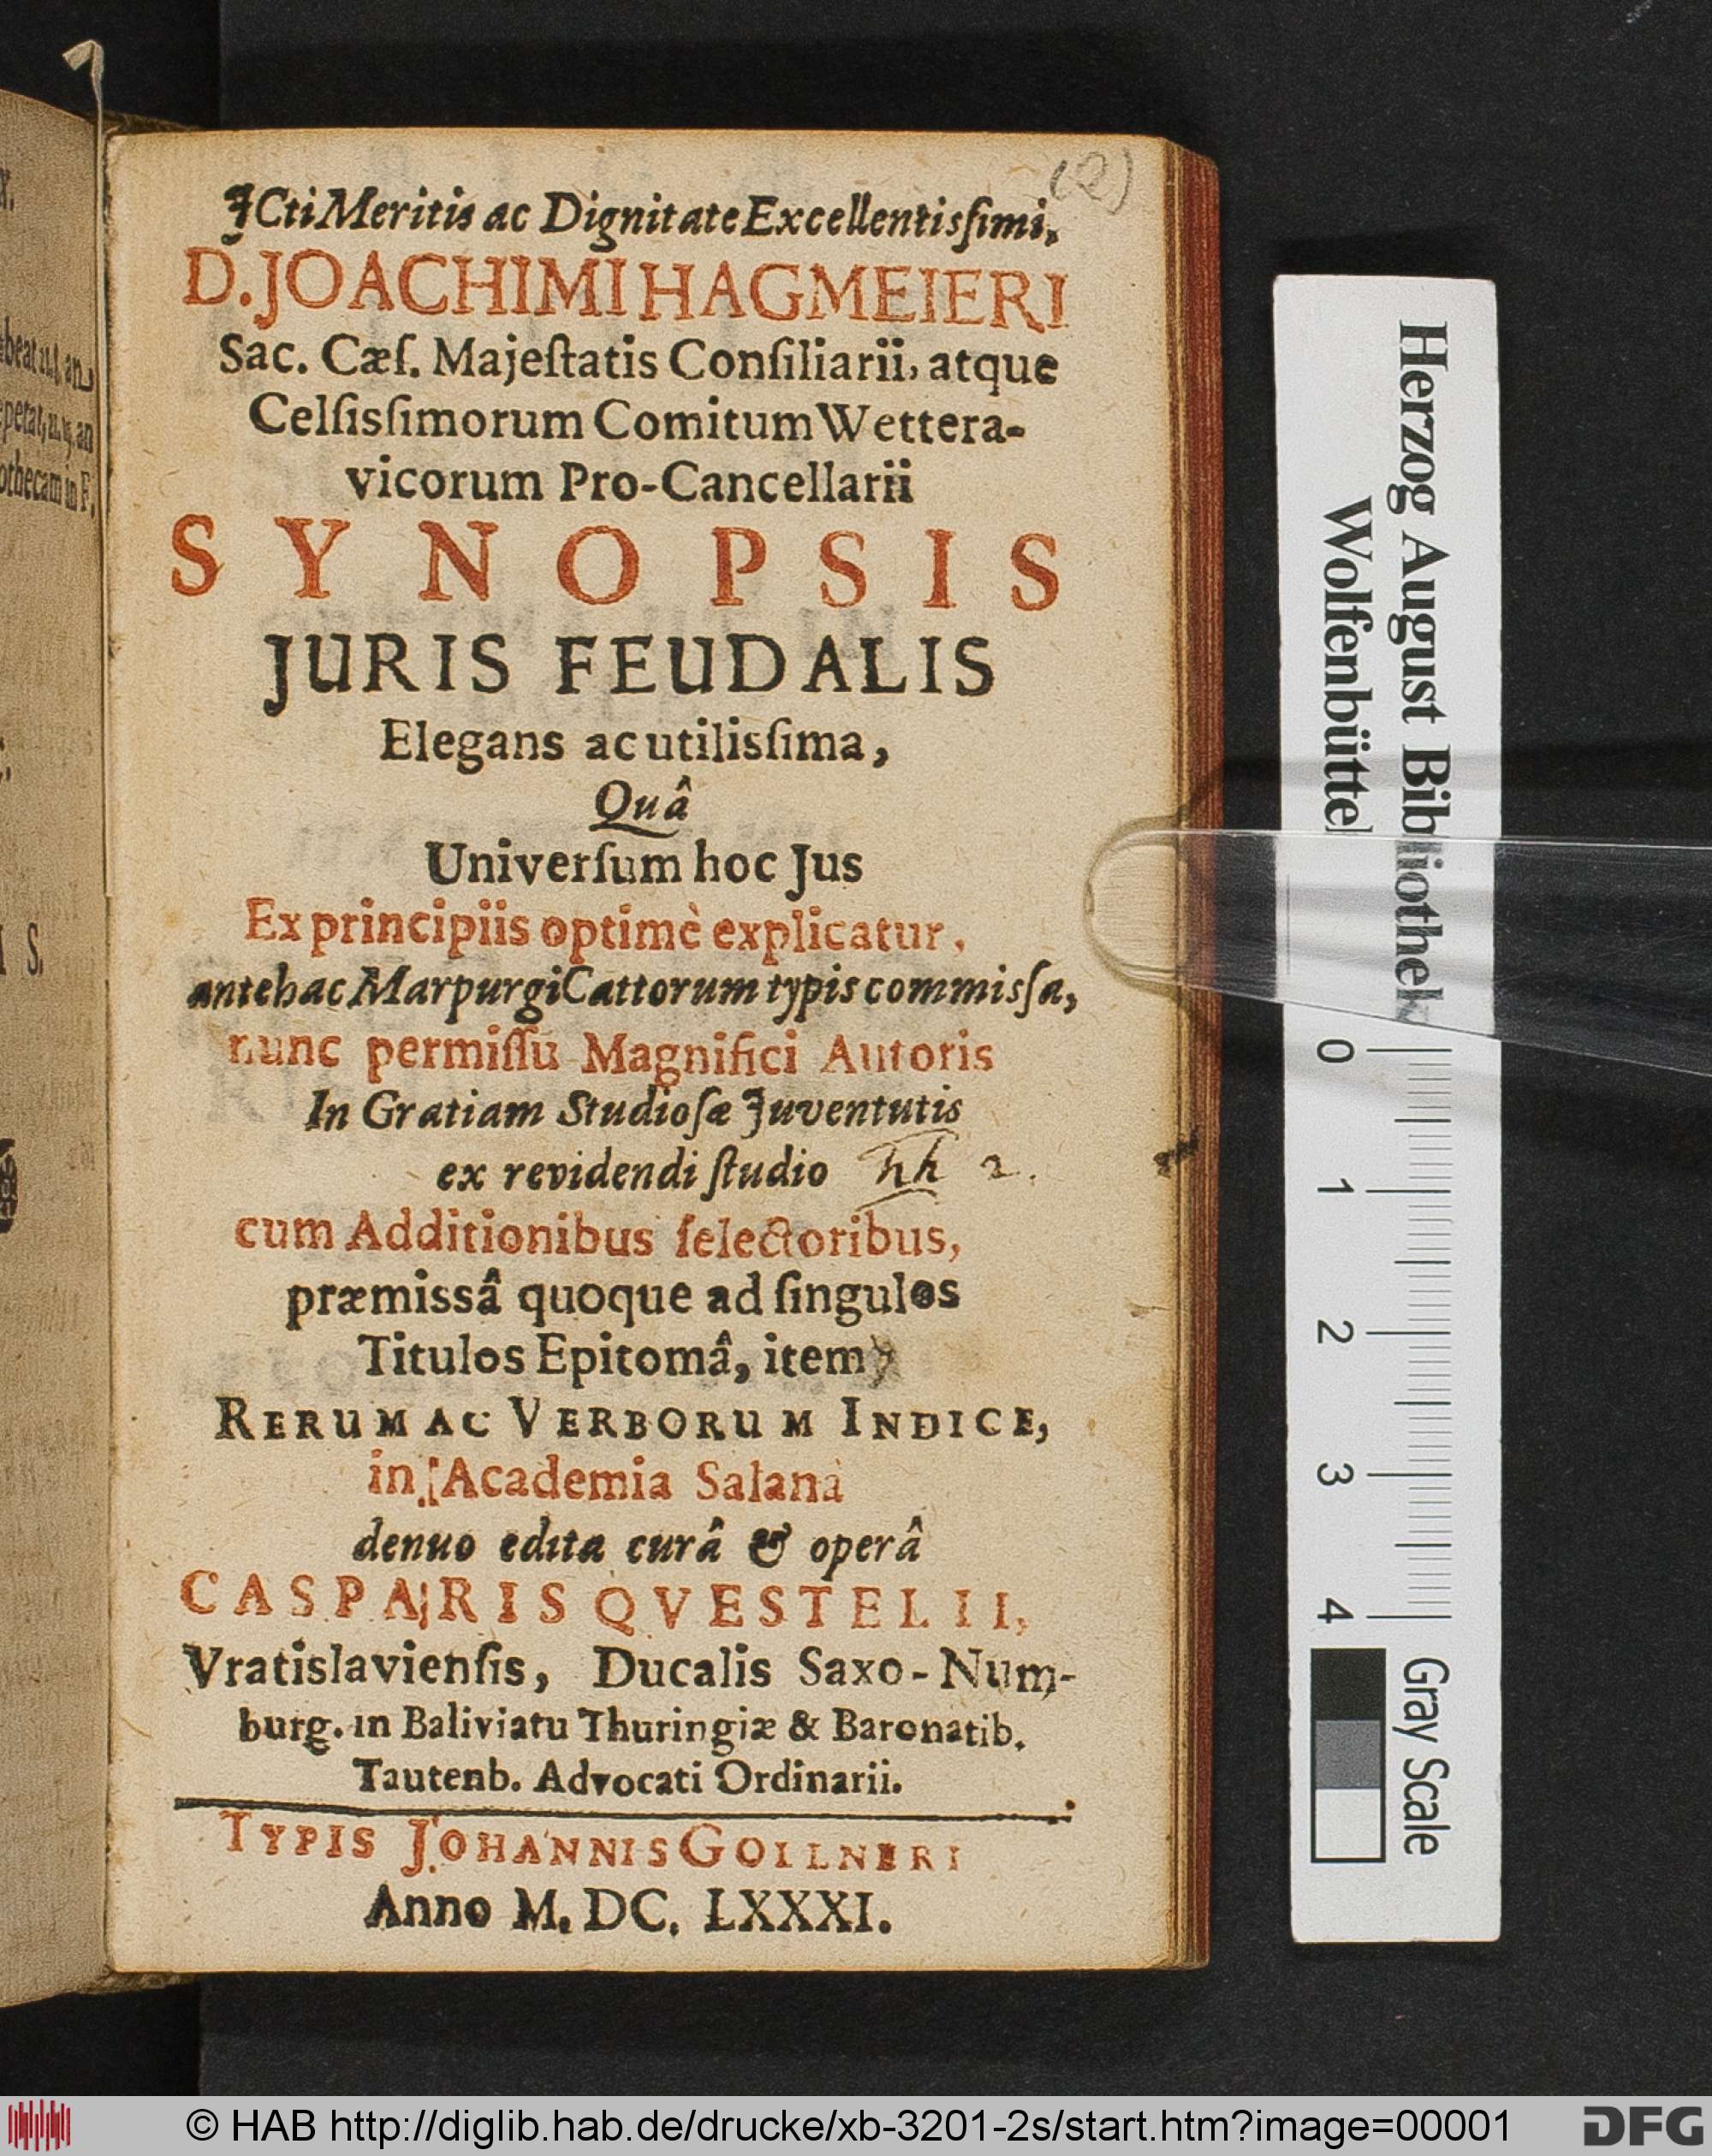 (2)
JCti Meritis ac Dignitate Excellentisſimi,
D. JOACHIMI HAGMEIERI
Sac. Cæſ. Majeſtatis Conſiliarii, atque
Celſisſimorum Comitum Wettera-
vicorum Pro-Cancellarii
SYNOPSIS
JURIS FEUDALIS
Elegans ac utilisſima,
Quâ
Univerſum hoc Jus
Ex principiis optimè explicatur,
antehac Marpurgi Cattorum typis commisſa,
nunc permiſſu Magnifici Autoris
In Gratiam Studioſæ Juventutis
ex revidendi ſtudio
cum Additionibus ſelectoribus,
præmissâ quoque ad ſingulos
Titulos Epitomâ, item
RERUM AC VERBORUM INDICE,
in Academia Salana
denuo edita curâ & operâ
CASPARIS QVESTELII,
Vratislavienſis, Ducalis Saxo-Num-
burg. in Baliviatu Thuringiæ & Baronatib.
Tautenb. Advocati Ordinarii.
TYPIS JOHANNIS GOLLNERI
Anno M. DC. LXXXI.
Herzog August Bibliothek
Wolfenbüttel
0
1
2
3
4
Gray Scale
© HAB http://diglib.hab.de/drucke/xb-3201-2s/start.htm?image=00001
DFG